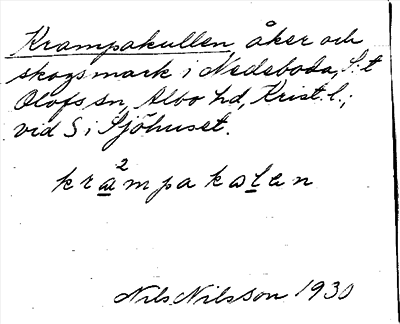 Krampakullen, åker och
skogsmark i Nedraboda, S:t
Olofs sn, Albo hd, Krist. l.;
vid S i Sjöhuset.
kra²mpakalen
Nils Nilsson 1930